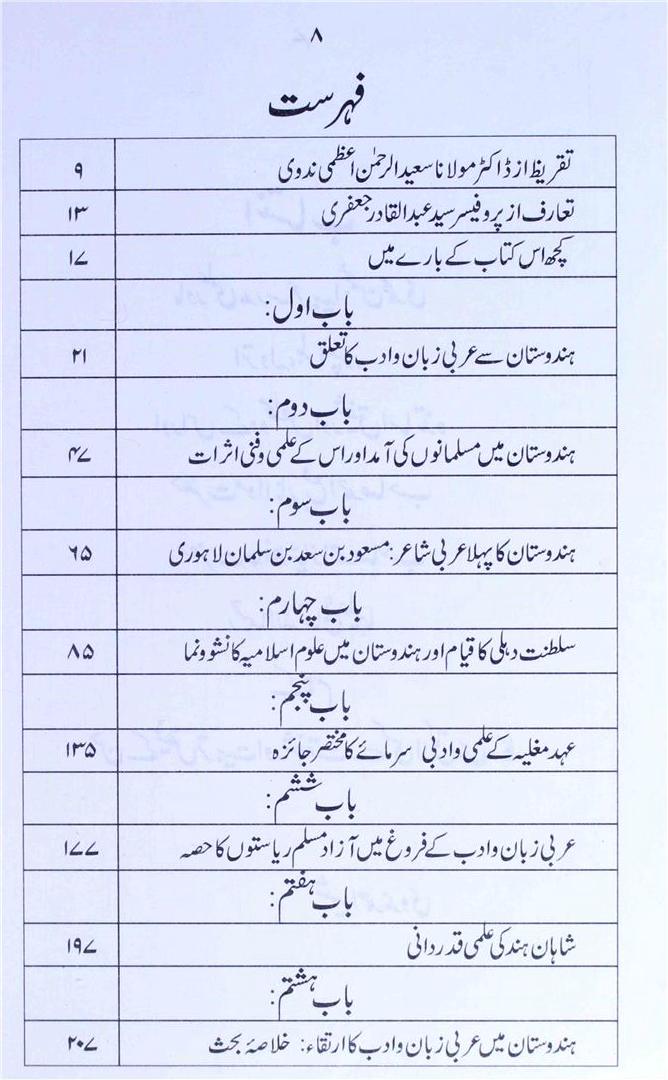 ۸
فہرست
تقریظ از ڈاکٹر مولانا سعید الرحمٰن اعظمی ندوی ۹
تعارف از پروفیسر سید عبدالقادر جعفری ۱۳
کچھ اس کتاب کے بارے میں ۱۷
باب اول:
ہندوستان سے عربی زبان وادب کا تعلق ۲۱
باب دوم:
ہندوستان میں مسلمانوں کی آمد اور اس کے علمی وفنی اثرات ۴۷
باب سوم:
ہندوستان کا پہلا عربی شاعر: مسعود بن سعد بن سلمان لاہوری ۶۵
باب چہارم:
سلطنت دہلی کا قیام اور ہندوستان میں علوم اسلامیہ کا نشوونما ۸۵
باب پنجم:
عہد مغلیہ کے علمی وادبی سرمائے کا مختصر جائزہ ۱۳۵
باب ششم:
عربی زبان وادب کے فروغ میں آزاد مسلم ریاستوں کا حصہ ۱۷۷
باب ہفتم:
شاہان ہند کی علمی قدردانی ۱۹۷
باب ہشتم:
ہندوستان میں عربی زبان وادب کا ارتقاء: خلاصۂ بحث ۲۰۷